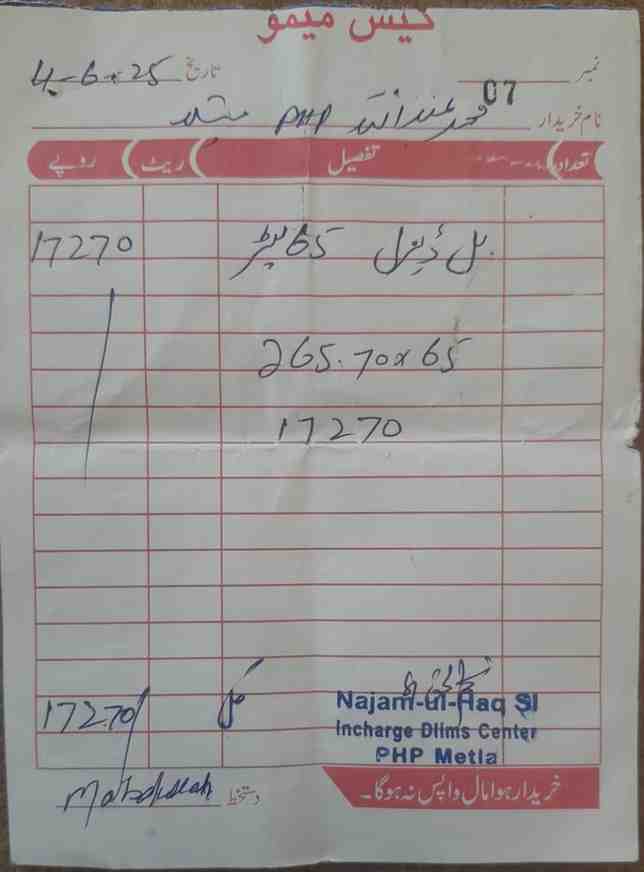 کیش میمو
نمبر 07 تاریخ 4-6-25
نام خریدار محمد عبداللہ PHP متلہ
تعداد تفصیل ریٹ روپے
بل ڈیزل 65 لیٹر 17270
265.70x65
17270
کل 17270
Najam-ul-Haq SI
Incharge Dlims Center
PHP Metla
خریدا ہوا مال واپس نہ ہوگا۔
دستخط Mabdullah